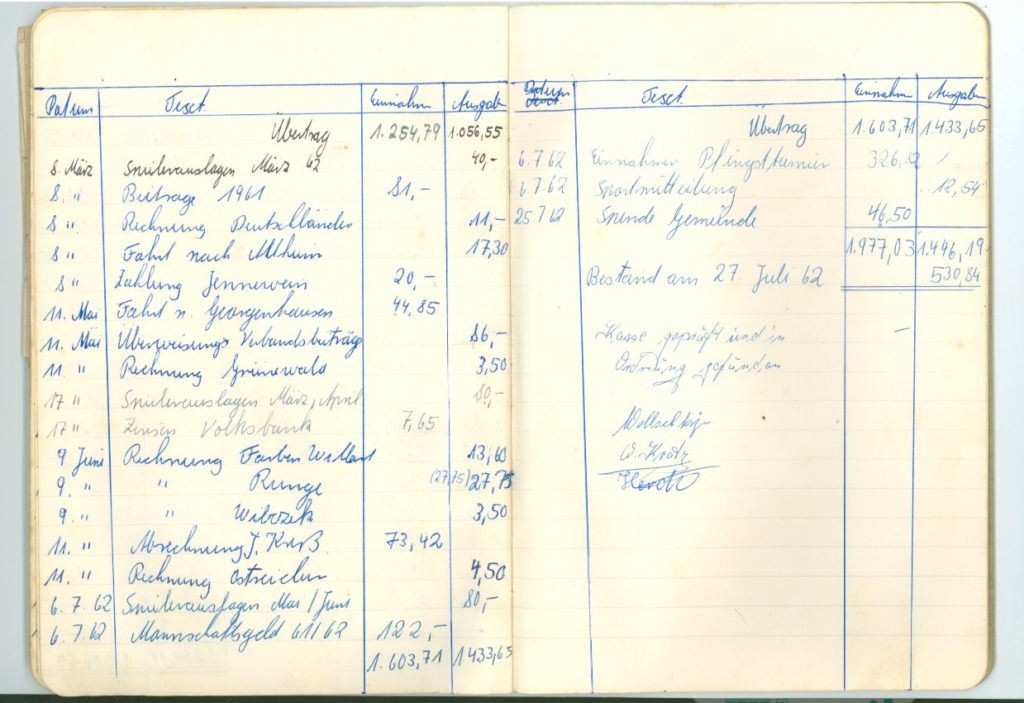 Datum Text Einnahm Ausgabe
Übertrag 1.254,79 1.056,55
8. März Spielerauslagen März 62 40,-
8. " Beiträge 1961 81,-
8 " Rechnung Deutschländer 11,-
8 " Fahrt nach Altheim 17,30
8 " Zahlung Jennewein 20,-
11. Mai Fahrt n. Georgenhausen 44,85
11. Mai Überweisungs Verbandsbeiträge 86,-
11. " Rechnung Grünewald 3,50
17 " Spielerauslagen März, April 80,-
17 " Zinsen Volksbank 7,65
9 Juni Rechnung Farben 13,60
9. " " Runge (27,75) 27,75
9. " " 3,50
11. " Abrechnung J. Kreß 73,42
11. " Rechnung 4,50
6. 7. 62 Spielerauslagen Mai / Juni 80,-
6. 7. 62 Mannschaftsgeld 61/62 122,-
1.603,71 1.433,65
Datum Text Einnahm Ausgabe
Übertrag 1.603,71 1.433,65
6.7.62 Einnahmen Pfingstturnier 326,82
6.7.62 Sportmitteilung 12,54
25.7.62 Spende Gemeinde 46,50
1.977,03 1.446,19
Bestand am 27. Juli 62 530,84
Kasse geprüft und in -
Ordnung gefunden